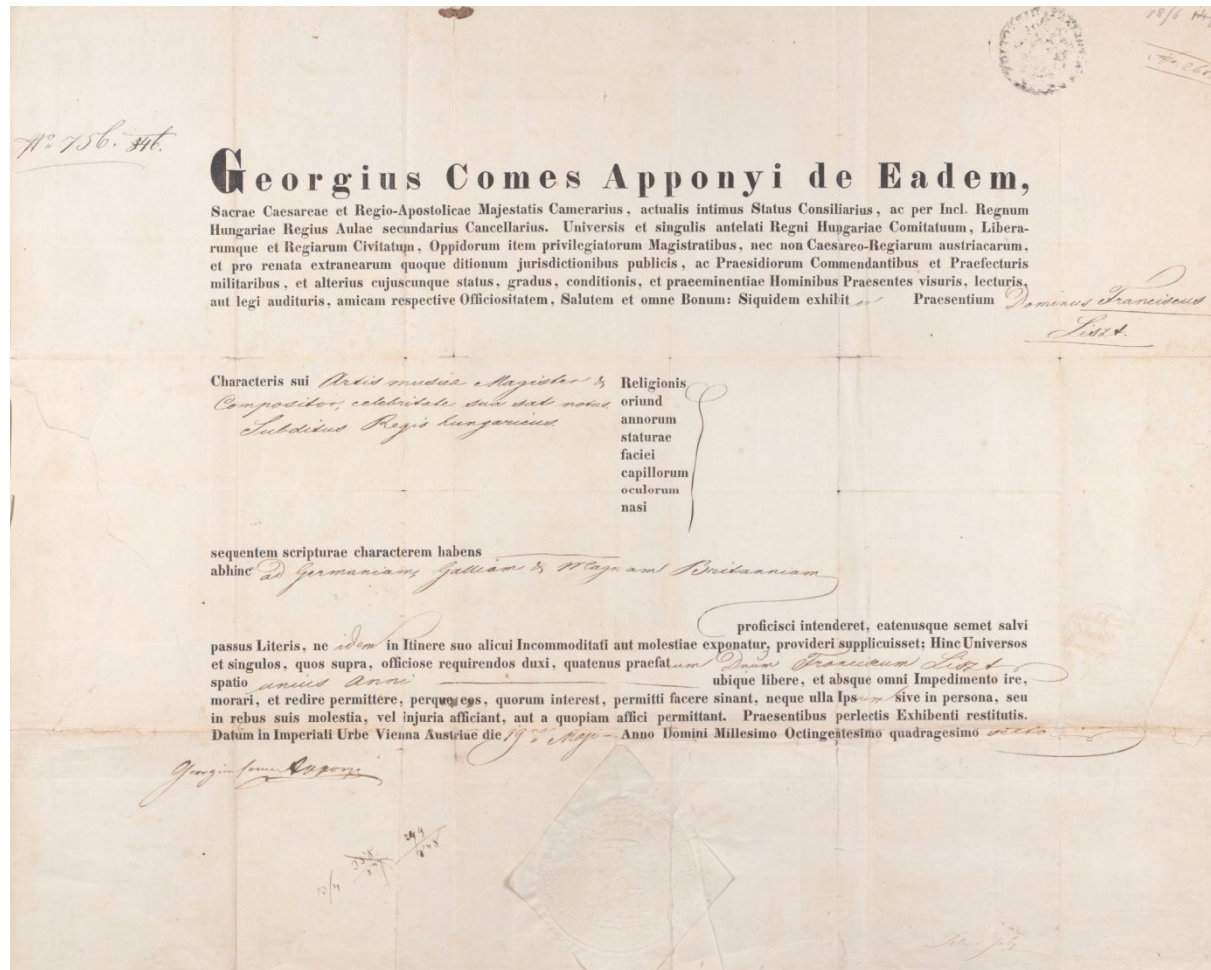 18/6
No 756. 846.
Georgius Comes Apponyi de Eadem,
Sacrae Caesareae et Regio-Apostolicae Majestatis Camerarius, actualis intimus Status Consiliarius, ac per Incl. Regnum
Hungariae Regius Aulae secundarius Cancellarius. Universis et singulis antelati Regni Hungariae Comitatuum, Libera-
rumque et Regiarum Civitatum, Oppidorum item privilegiatorum Magistratibus, nec non Caesareo-Regiarum austriacarum,
et pro renata extranearum quoque ditionum jurisdictionibus publicis, ac Praesidiorum Commendantibus et Praefecturis
militaribus, et alterius cujuscunque status, gradus, conditionis, et praeeminentiae Hominibus Praesentes visuris, lecturis,
aut legi audituris, amicam respective Officiositatem, Salutem et omne Bonum: Siquidem exhibit or Praesentium Dominus Franciscus
Liszt.
Characteris sui Artis musicae Magister &
Compositor, celebritate sua sat notus.
Subditus Regis hungaricus.
Religionis
oriund
annorum
staturae
faciei
capillorum
oculorum
nasi
sequentem scripturae characterem habens
abhinc ad Germaniam, Galliam & Magnam Britanniam
proficisci intenderet, eatenusque semet salvi
passus Literis, ne idem in Itinere suo alicui Incommoditati aut molestiae exponatur, provideri supplicuisset; Hinc Universos
et singulos, quos supra, officiose requirendos duxi, quatenus praefatum Dnum Franciscum Liszt
spatio unius Anni ubique libere, et absque omni Impedimento ire,
morari, et redire permittere, perque eos, quorum interest, permitti facere sinant, neque ulla Ipsum sive in persona, seu
in rebus suis molestia, vel injuria afficiant, aut a quopiam affici permittant. Praesentibus perlectis Exhibenti restitutis.
Datum in Imperiali Urbe Vienna Austriae die 19na Maji Anno Domini Millesimo Octingentesimo quadragesimo sexto
Georgius Comes Apponyi